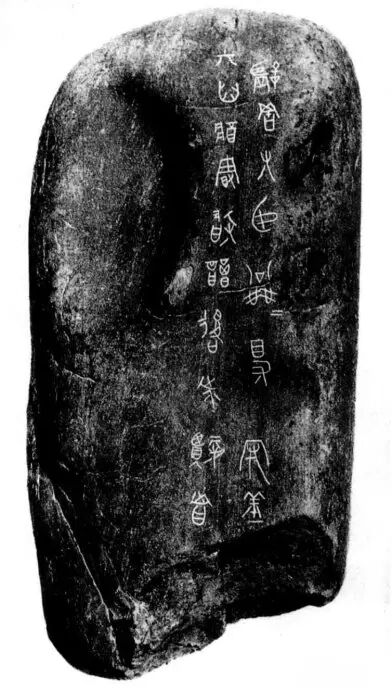 監罟尤臣公乘得守丘
丌臼將曼敢謁後尗賢者